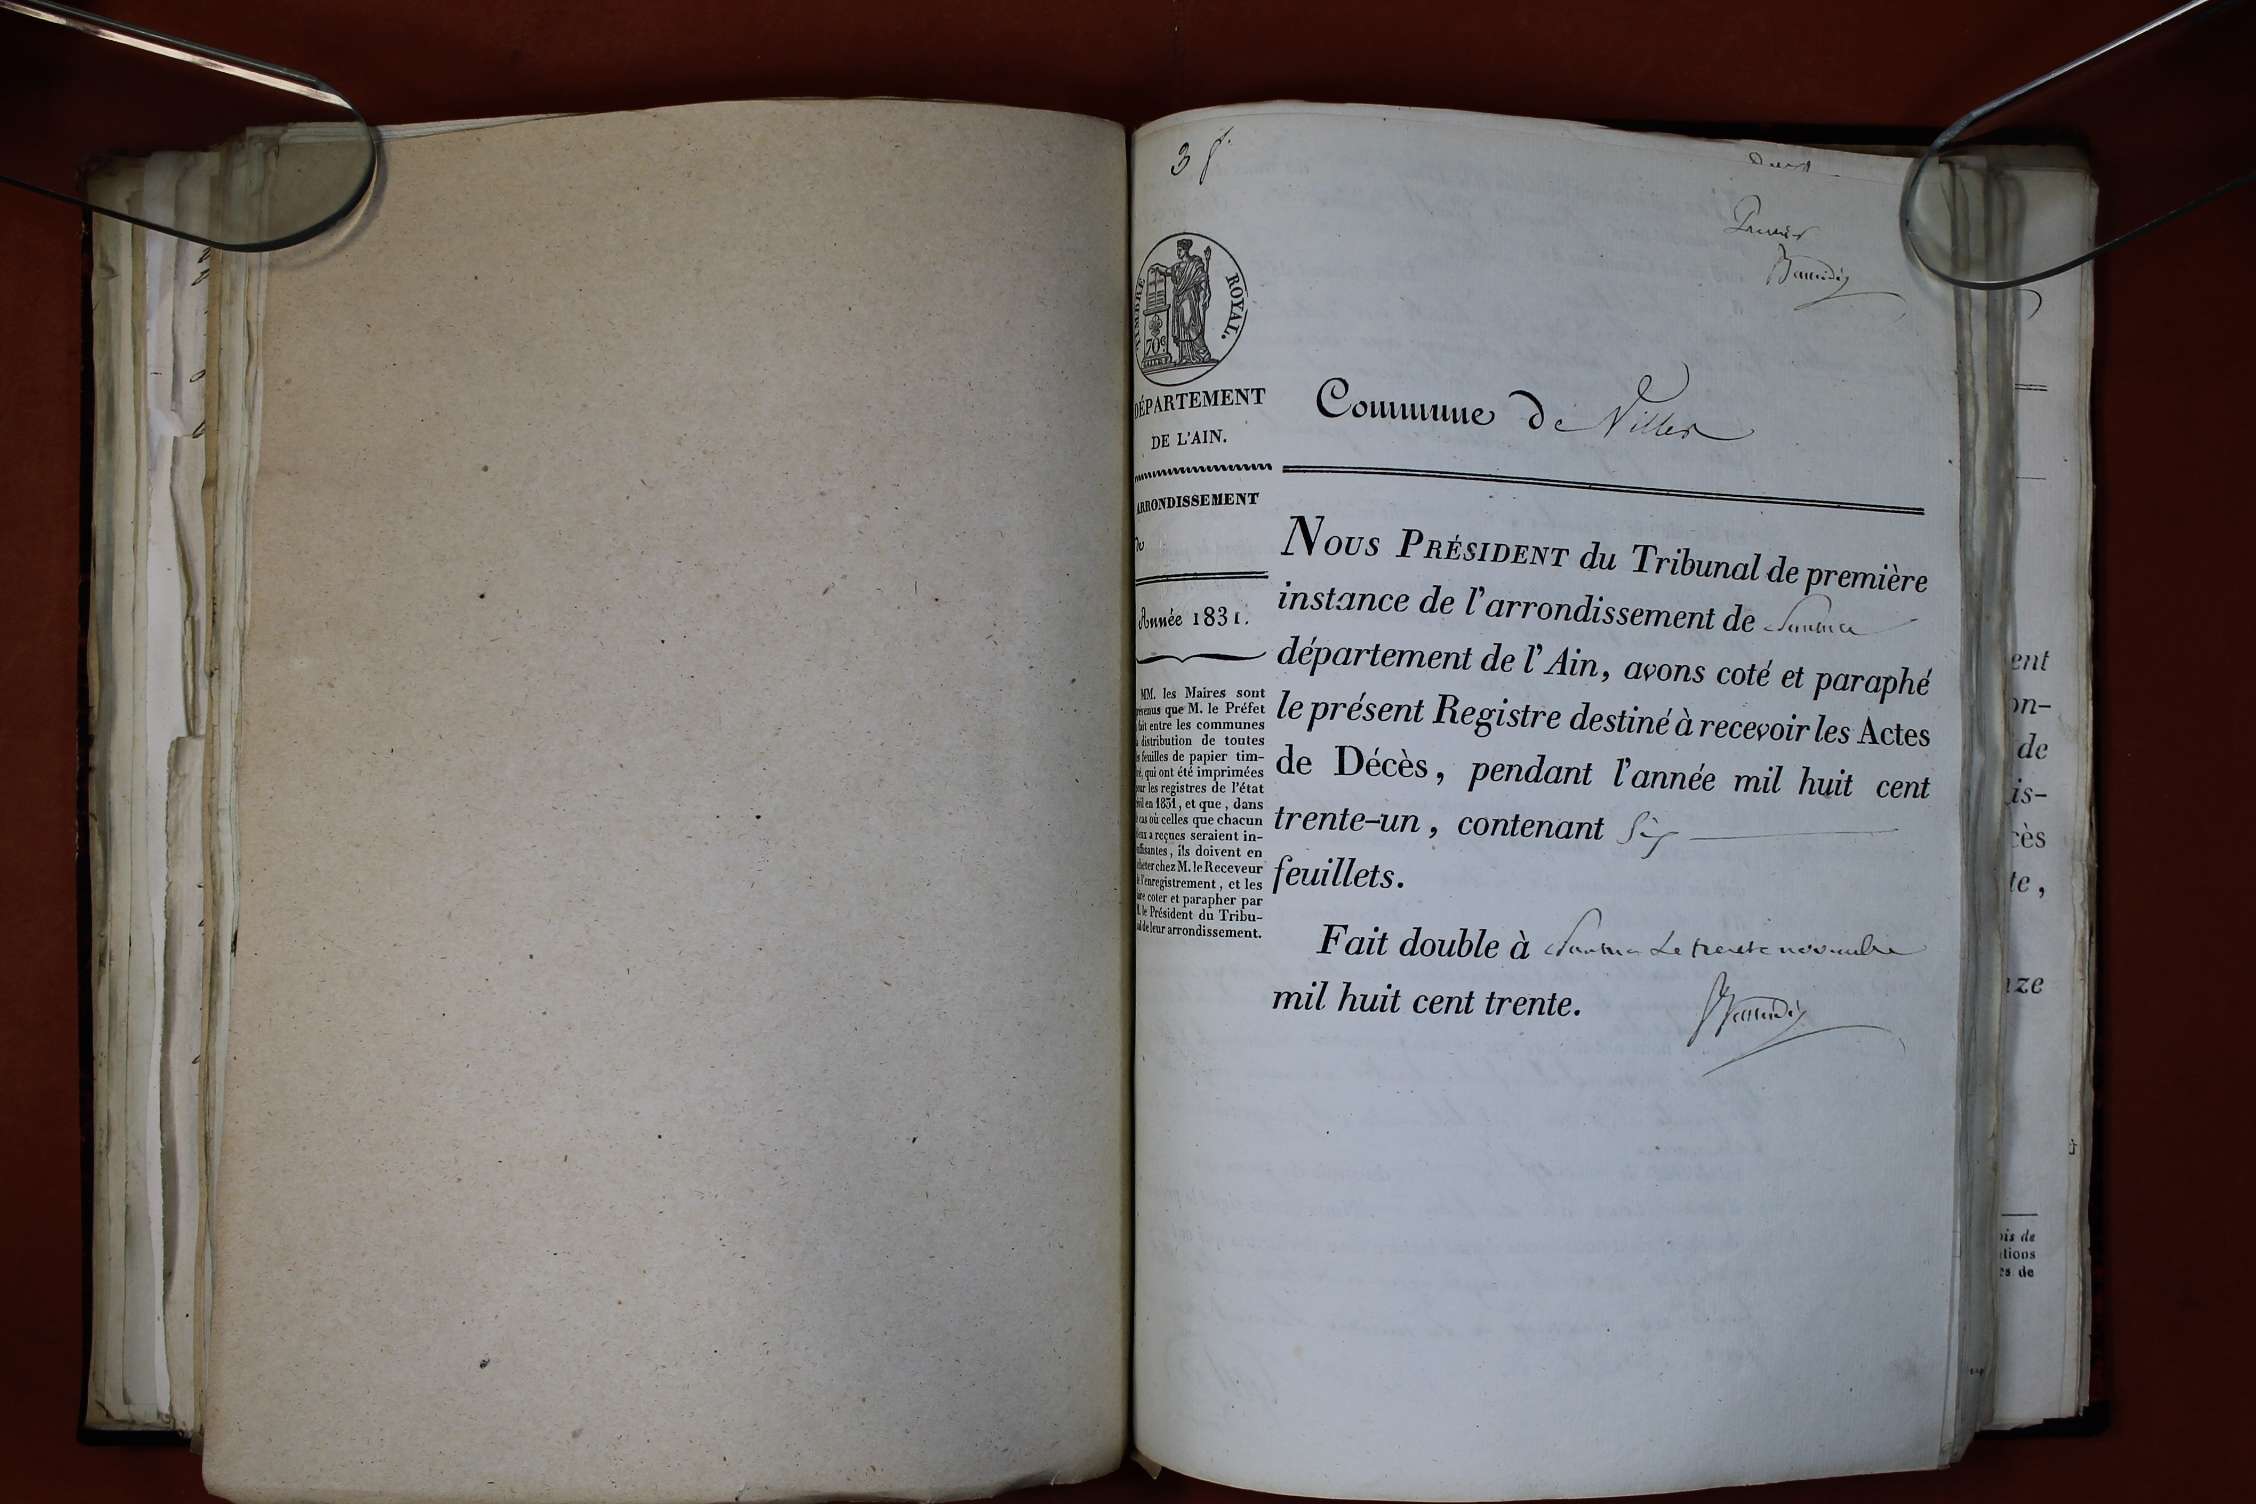 3 f.
Premier
TIMBRE ROYAL.
70c.
DÉPARTEMENT
DE L'AIN.
ARRONDISSEMENT
de
Année 1831.
MM. les Maires sont
prévenus que M. le Préfet
a fait entre les communes
la distribution de toutes
les feuilles de papier tim-
bré, qui ont été imprimées
pour les registres de l'état
civil en 1831, et que, dans
le cas où celles que chacun
d'eux a reçues seraient in-
suffisantes, ils doivent en
acheter chez M. le Receveur
de l'enregistrement, et les
faire coter et parapher par
M. le Président du Tribu-
nal de leur arrondissement.
Commune de Villes
NOUS PRÉSIDENT du Tribunal de première
instance de l'arrondissement de Nantua
département de l'Ain, avons coté et paraphé
le présent Registre destiné à recevoir les Actes
de Décès, pendant l'année mil huit cent
trente-un, contenant Six
feuillets.
Fait double à Nantua Le trente novembre
mil huit cent trente.
ent
on-
de
is-
cès
te,
nze
ois de
tions
es de